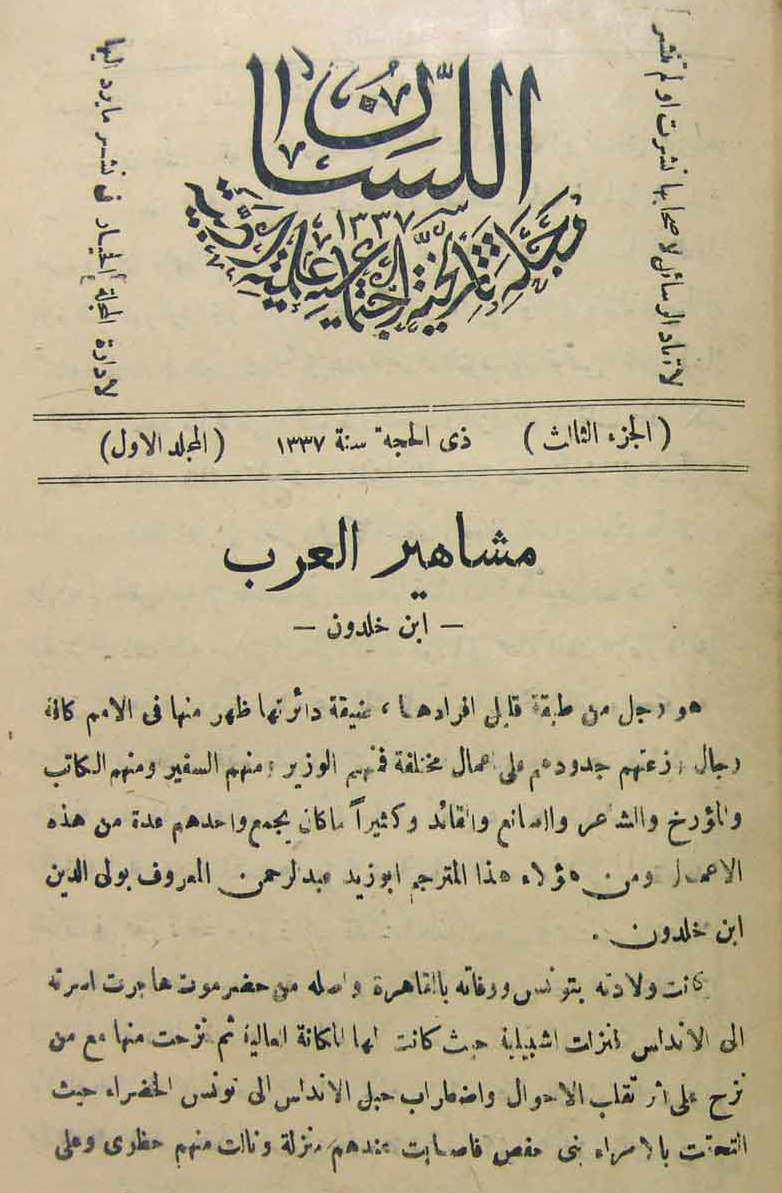 اللسان
١٣٣٧
مجلة تاريخية اجتماعية علمية ادبية
لا تعاد الرسائل لاصحابها نشرت او لم تنشر
لادارة المجلة الخيار في نشر ما يرد اليها
( الجزء الثالث ) ذى الحجة سنة ١٣٣٧ ( المجلد الاول )
مشاهير العرب
– ابن خلدون –
هو رجل من طبقة قابل افرادها ، ضيقة دائرتها ظهر منها فى الامم كافة
رجال وزعتهم جدودهم على اعمال مختلفة فمنهم الوزير ومنهم السفير ومنهم الكاتب
والمؤرخ والشاعر والصانع والقائد وكثيراً ماكان يجمع واحدهم عدة من هذه
الاعمال ومن هؤلاء هذا المترجم ابوزيد عبدالرحمن المعروف بولى الدين
ابن خلدون .
كانت ولادته بتونس ووفاته بالقاهرة واصله من حضرموت هاجرت اسرته
الى الاندلس فنزلت اشبيلية حيث كانت لها المكانة العالية ثم نزحت منها مع من
نزح على اثر تقلب الاحوال واضطراب حبل الاندلس الى تونس الخضراء حيث
التحقت بالامراء بنى حفص فاصابت عندهم منزلة ونالت منهم حظوى وعلى